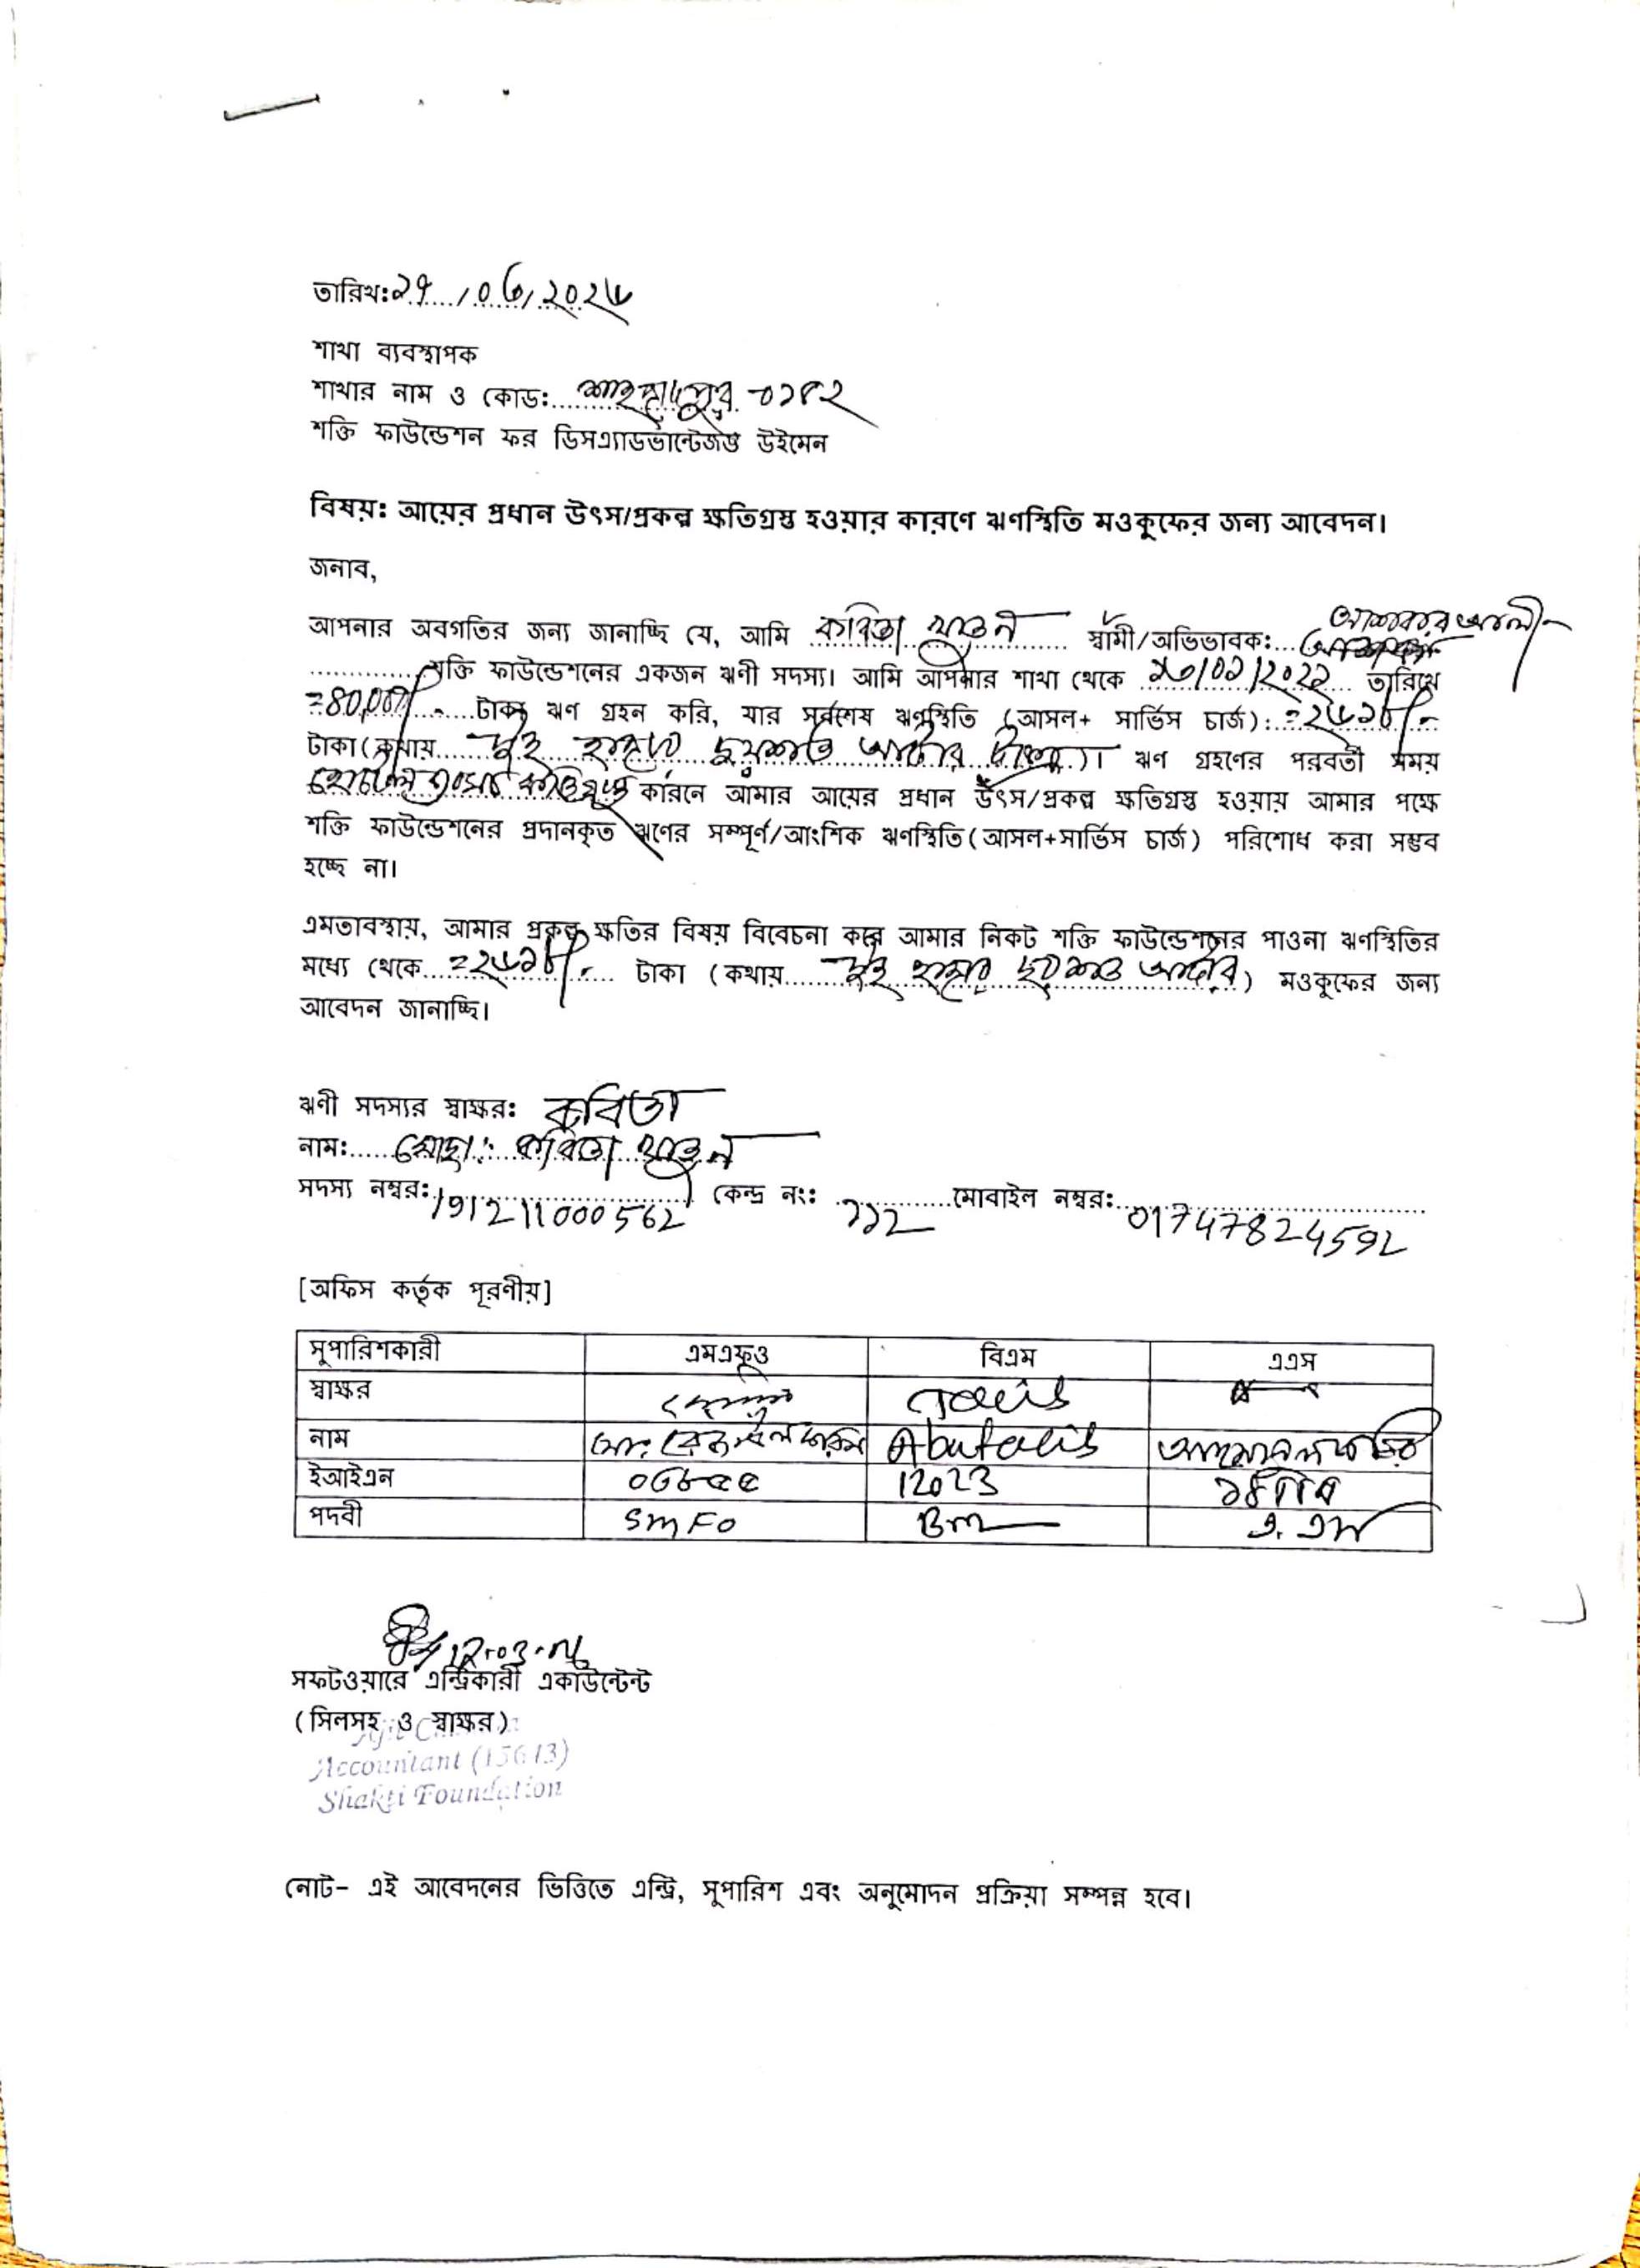 তারিখ: ২৭/০৩/২০২৬
শাখা ব্যবস্থাপক
শাখার নাম ও কোড: শাহজাদপুর -০১৫২
শক্তি ফাউন্ডেশন ফর ডিসএ্যাডভান্টেজড উইমেন
বিষয়: আয়ের প্রধান উৎস/প্রকল্প ক্ষতিগ্রস্ত হওয়ার কারণে ঋণস্থিতি মওকুফের জন্য আবেদন।
জনাব,
আপনার অবগতির জন্য জানাচ্ছি যে, আমি কবিতা খাতুন স্বামী/অভিভাবক:
শক্তি ফাউন্ডেশনের একজন ঋণী সদস্য। আমি আপনার শাখা থেকে তারিখে
=80,000/- টাকা ঋণ গ্রহন করি, যার সর্বশেষ ঋণস্থিতি (আসল+ সার্ভিস চার্জ): =২৬১৮/-
টাকা (কথায় দুই হাজার ছয়শত আঠার টাকা)। ঋণ গ্রহণের পরবর্তী সময়
কারনে আমার আয়ের প্রধান উৎস/প্রকল্প ক্ষতিগ্রস্ত হওয়ায় আমার পক্ষে
শক্তি ফাউন্ডেশনের প্রদানকৃত ঋণের সম্পূর্ণ/আংশিক ঋণস্থিতি(আসল+সার্ভিস চার্জ) পরিশোধ করা সম্ভব
হচ্ছে না।
এমতাবস্থায়, আমার প্রকল্প ক্ষতির বিষয় বিবেচনা করে আমার নিকট শক্তি ফাউন্ডেশনের পাওনা ঋণস্থিতির
মধ্যে থেকে =২৬১৮/- টাকা (কথায় দুই হাজার ছয়শত আঠার) মওকুফের জন্য
আবেদন জানাচ্ছি।
ঋণী সদস্যর স্বাক্ষর: কবিতা
নাম: মোছা: কবিতা খাতুন
সদস্য নম্বর: 191211000562 কেন্দ্র নং: ১১২ মোবাইল নম্বর: 01747824592
[অফিস কর্তৃক পূরণীয়]
সুপারিশকারী এমএফও বিএম এএস
স্বাক্ষর Talib
নাম Abu talib
ইআইএন ০৩৮৫৫ 12023
পদবী SMFO Bm এ. এস
12.03.26
সফটওয়ারে এন্ট্রিকারী একাউন্টেন্ট
(সিলসহ ও স্বাক্ষর)
Accountant (15613)
Shakti Foundation
নোট- এই আবেদনের ভিত্তিতে এন্ট্রি, সুপারিশ এবং অনুমোদন প্রক্রিয়া সম্পন্ন হবে।